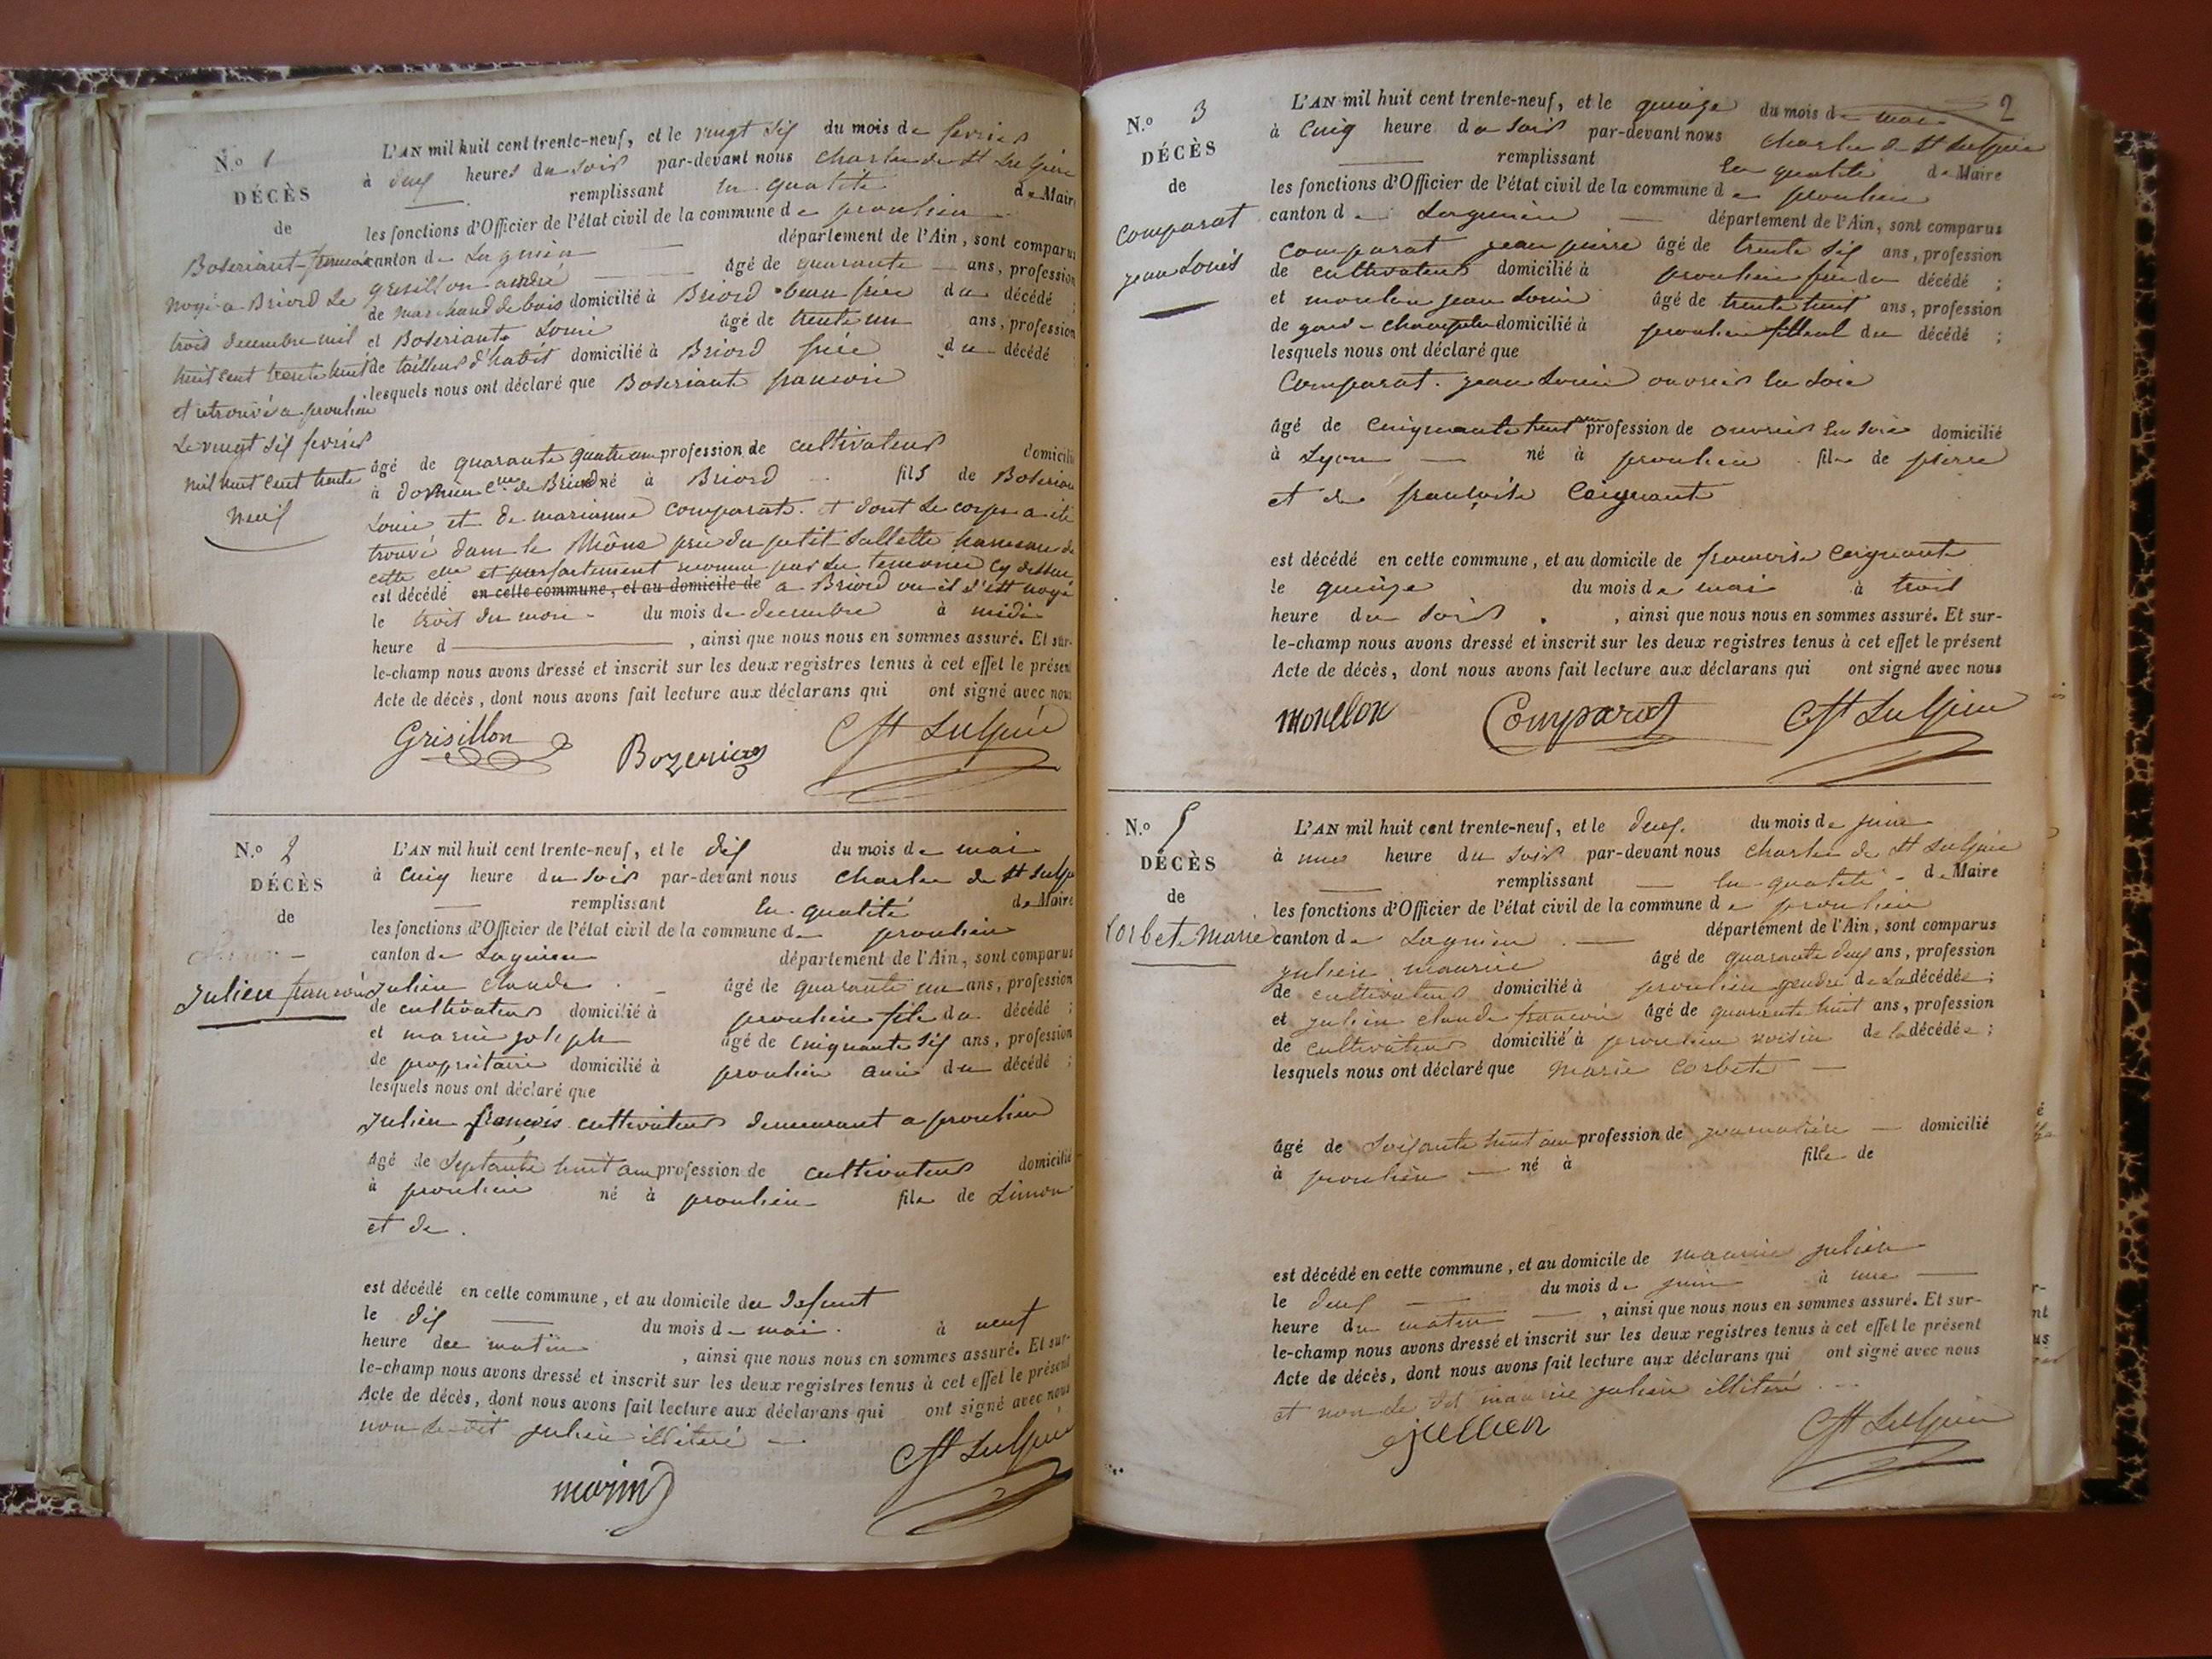 N.º 1
DÉCÈS
de
Boseriant francois
noyé a Briord le
trois decembre mil
huit cent trente huit
et retrouvé a proulieu
Le vingt six fevrier
mil huit cent trente
neuf
L'AN mil huit cent trente-neuf, et le vingt six du mois de fevrier
à deux heures du soir par-devant nous charles de St Sulpice
remplissant en qualité de Maire
les fonctions d'Officier de l'état civil de la commune de proulieu
canton de Lagnieu département de l'Ain, sont comparus
grisillon andré âgé de quarante ans, profession
de marchand de bois domicilié à Briord beau frere du décédé ;
et Boseriant Louis âgé de trente un ans, profession
de tailleur d'habit domicilié à Briord frere du décédé
lesquels nous ont déclaré que Boseriant francois
âgé de quarante quatre ans profession de cultivateur domicilié
à c.ne de Briord né à Briord fils de Boseriant
Louis et de marianne comparat. et dont le corps a été
trouvé dans le Rhône près du petit Sallette hameau de
cette c.ne et parfaitement reconnu par les temoins cy dessus
est décédé en cette commune, et au domicile de a Briord ou il s'est noyé
le trois du mois du mois de decembre à midi
heure d , ainsi que nous nous en sommes assuré. Et sur-
le-champ nous avons dressé et inscrit sur les deux registres tenus à cet effet le présent
Acte de décès, dont nous avons fait lecture aux déclarans qui ont signé avec nous
Grisillon Bozerian C St Sulpice
N.º 2
DÉCÈS
de
Julien francois
L'AN mil huit cent trente-neuf, et le dix du mois de mai
à cinq heure du soir par-devant nous charles de St Sulpice
remplissant en qualité de Maire
les fonctions d'Officier de l'état civil de la commune de proulieu
canton de Lagnieu département de l'Ain, sont comparus
Julien claude âgé de quarante un ans, profession
de cultivateur domicilié à proulieu fils du décédé ;
et marin joseph âgé de cinquante six ans, profession
de propriétaire domicilié à proulieu ami du décédé ;
lesquels nous ont déclaré que
Julien francois cultivateur demeurant a proulieu
âgé de septante huit ans profession de cultivateur domicilié
à proulieu né à proulieu fils de Simon
et de .
est décédé en cette commune, et au domicile du defunt
le dix du mois de mai. à neuf
heure du matin , ainsi que nous nous en sommes assuré. Et sur-
le-champ nous avons dressé et inscrit sur les deux registres tenus à cet effet le présent
Acte de décès, dont nous avons fait lecture aux déclarans qui ont signé avec nous
non le dit julien illiteré
marin C St Sulpice
2
N.º 3
DÉCÈS
de
Comparat
jean Louis
L'AN mil huit cent trente-neuf, et le quinze du mois de mai
à cinq heure du soir par-devant nous charles de St Sulpice
remplissant en qualité de Maire
les fonctions d'Officier de l'état civil de la commune de proulieu
canton de Lagnieu département de l'Ain, sont comparus
Comparat jean pierre âgé de trente six ans, profession
de cultivateur domicilié à proulieu du décédé ;
et moulon jean Louis âgé de trente huit ans, profession
de gard-champetre domicilié à proulieu filleul du décédé ;
lesquels nous ont déclaré que
Comparat jean Louis ouvrier en soie
âgé de cinquante huit ans profession de ouvrier en soie domicilié
à Lyon né à proulieu fils de pierre
et de francoise Coignante
est décédé en cette commune, et au domicile de francoise Coignante
le quinze du mois de mai à trois
heure du soir , ainsi que nous nous en sommes assuré. Et sur-
le-champ nous avons dressé et inscrit sur les deux registres tenus à cet effet le présent
Acte de décès, dont nous avons fait lecture aux déclarans qui ont signé avec nous
moulon Comparat C St Sulpice
N.º 5
DÉCÈS
de
Corbet Marie
L'AN mil huit cent trente-neuf, et le deux du mois de juin
à une heure du soir par-devant nous charles de St Sulpice
remplissant en qualité de Maire
les fonctions d'Officier de l'état civil de la commune de proulieu
canton de Lagnieu département de l'Ain, sont comparus
julien maurice âgé de quarante deux ans, profession
de cultivateur domicilié à proulieu gendre de La décédée ;
et julien claude francois âgé de quarante huit ans, profession
de cultivateur domicilié à proulieu voisin de la décédée ;
lesquels nous ont déclaré que Marie Corbet
âgé de soixante huit ans profession de journaliere domicilié
à proulieu né à fille de
est décédé en cette commune, et au domicile de maurice julien
le deux du mois de juin à une
heure du matin , ainsi que nous nous en sommes assuré. Et sur-
le-champ nous avons dressé et inscrit sur les deux registres tenus à cet effet le présent
Acte de décès, dont nous avons fait lecture aux déclarans qui ont signé avec nous
et non le dit maurice julien illiteré
jullien C St Sulpice